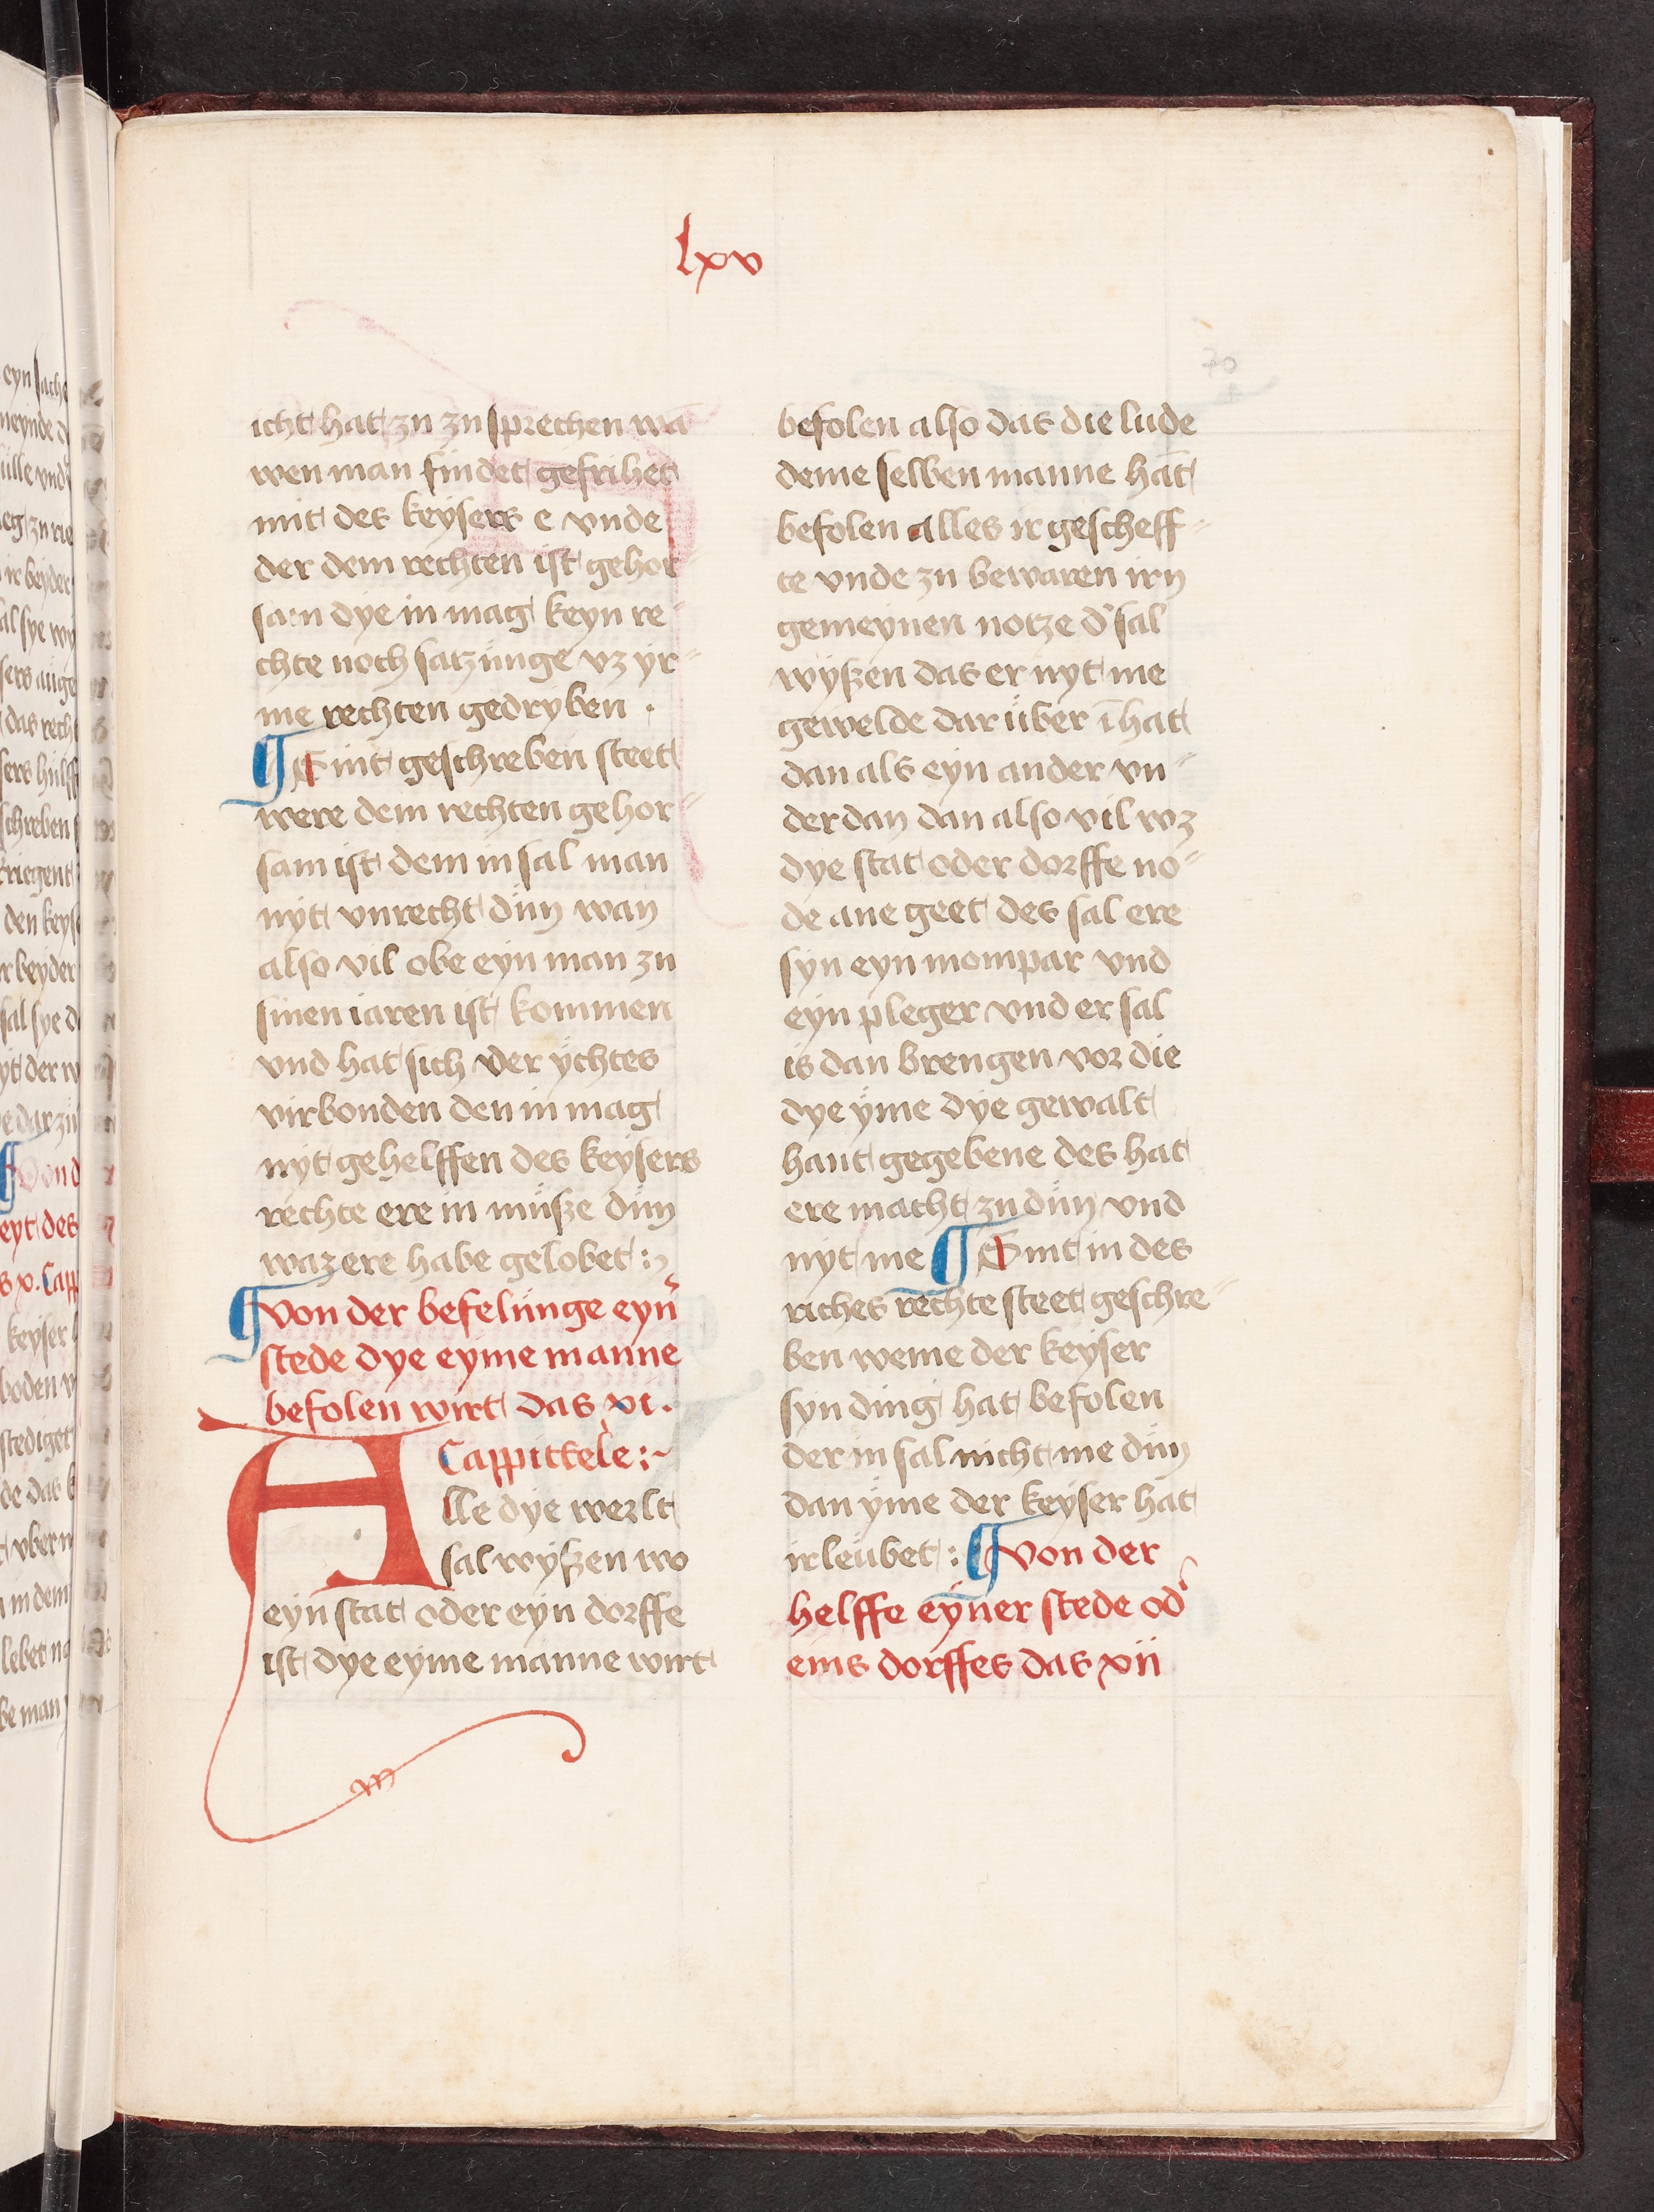 lxv
70
icht hat zu zu sprechen wā
wen man findet gefrihet
mit des keysers e vnde
der dem rechten ist gehor⸗
sam dye in mag keyn re⸗
chte noch satzünge vz yr⸗
me rechten gedryben .
¶ Sint geschreben steet
were dem rechten gehor⸗
sam ist dem in sal man
nyt vnrecht důn wan
also vil obe eyn man zu
sinen iaren ist kommen
vnd hat sich vber ychtes
virbonden den in mag
nyt gehelffen des keysers
rechte ere in müsze důn
waz ere habe gelobet :~
¶ Von der befelünge eyn̉
stede dye eyme manne
befolen wirt das xi .
Cappittele :~
Alle dye werlt
sal wyszen wo
eyn stat oder eyn dorffe
ist dye eyme manne wirt
befolen also das die lude
deme selben manne hāt
befolen alles ir gescheff⸗
te vnde zu bewaren irn
gemeynen notze d̉ sal
wyszen das er nyt me
gewelde dar über ī hat
dan als eyn ander vn⸗
derdan dan also vil wz
dye stat oder dorffe no⸗
de ane geet des sal ere
syn eyn mompar vnd
eyn pleger vnd er sal
is dan brengen vor die
dye yme dye gewalt
hant gegebene des hat
ere macht zu důn vnd
nyt me ¶ Sint in des
riches rechte steet geschre⸗
ben weme der keyser
syn ding hat befolen
der in sal nicht me důn
dan yme der keyser hat
irleubet : ¶ Von der
helffe eyner stede od̉
eins dorffes das xii